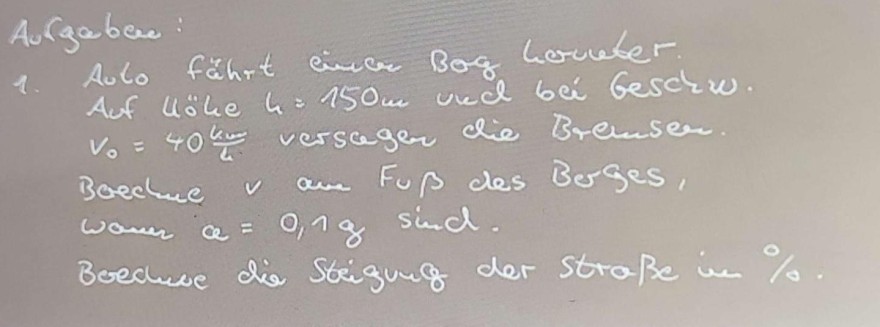 Aufgaben:
1. Auto fährt einen Berg herunter.
Auf Höhe h = 150m und bei Geschw.
v₀ = 40 km/h versagen die Bremsen.
Berechne v am Fuß des Berges,
wenn a = 0,1g sind.
Berechne die Steigung der Straße in %.